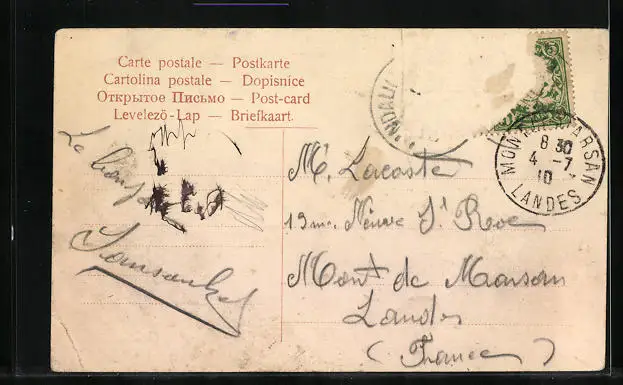 Carte postale — Postkarte
Cartolina postale — Dopisnice
Открытое Письмо — Post-card
Levelezö-Lap — Briefkaart.
NDALU
MONT DE MARSAN
8 30
4 -7
10
LANDES
Mr. Lacoste
Neuve St Roc
Mont de Marsan
Landes
(France)
Le